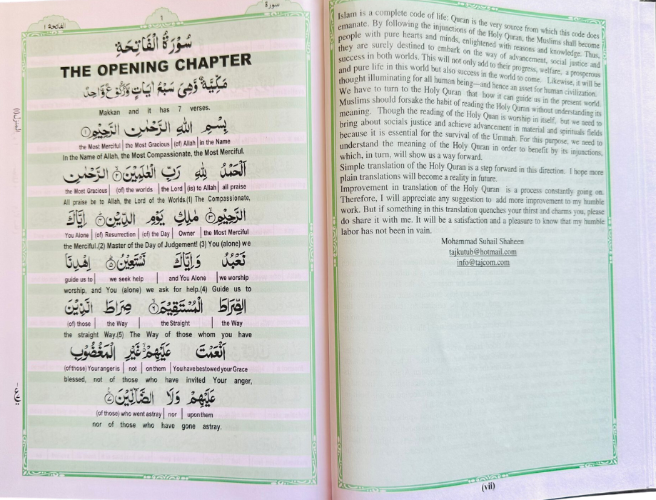 سورة
1
الفاتحة ١
سُوْرَةُ الْفَاتِحَةِ
THE OPENING CHAPTER
مَكِّيَّةٌ وَّهِيَ سَبْعُ اٰيَاتٍ
Makkan and it has 7 verses.
بِسْمِ اللّٰهِ الرَّحْمٰنِ الرَّحِيْمِ ۝١
the Most Merciful | the Most Gracious | (of) Allah | in the Name
In the Name of Allah, the Most Compassionate, the Most Merciful.
اَلْحَمْدُ لِلّٰهِ رَبِّ الْعٰلَمِيْنَ ۝٢ الرَّحْمٰنِ
the Most Gracious | (of) the worlds | the Lord | (is) to Allah | all praise
All praise be to Allah, the Lord of the Worlds.(1) The Compassionate,
الرَّحِيْمِ ۝٣ مٰلِكِ يَوْمِ الدِّيْنِ ۝٤ اِيَّاكَ
You Alone | (of) Resurrection | (of) the Day | Owner | the Most Merciful
the Merciful.(2) Master of the Day of Judgement! (3) You (alone) we
نَعْبُدُ وَاِيَّاكَ نَسْتَعِيْنُ ۝٥ اِهْدِنَا
guide us to | we seek help | and You Alone | we worship
worship, and You (alone) we ask for help.(4) Guide us to
الصِّرَاطَ الْمُسْتَقِيْمَ ۝٦ صِرَاطَ الَّذِيْنَ
(of) those | the Way | the Straight | the Way
the straight Way.(5) The Way of those whom you have
اَنْعَمْتَ عَلَيْهِمْ غَيْرِ الْمَغْضُوْبِ
(of those) Your anger is | not | on them | You have bestowed your Grace
blessed, not of those who have invited Your anger,
عَلَيْهِمْ وَلَا الضَّآلِّيْنَ ۝٧
(of those) who went astray | nor | upon them
nor of those who have gone astray.
Islam is a complete code of life: Quran is the very source from which this code does
emanate. By following the injunctions of the Holy Quran, the Muslims shall become
people with pure hearts and minds, enlightened with reasons and knowledge. Thus,
they are surely destined to embark on the way of advancement, social justice and
success in both worlds. This will not only add to their progress, welfare, a prosperous
and pure life in this world but also success in the world to come. Likewise, it will be
thought illuminating for all human being—and hence an asset for human civilization.
We have to turn to the Holy Quran that how it can guide us in the present world.
Muslims should forsake the habit of reading the Holy Quran without understanding its
meaning. Though the reading of the Holy Quran is worship in itself, but we need to
bring about socials justice and achieve advancement in material and spirituals fields
because it is essential for the survival of the Ummah. For this purpose, we need to
understand the meaning of the Holy Quran in order to benefit by its injunctions,
which, in turn, will show us a way forward.
Simple translation of the Holy Quran is a step forward in this direction. I hope more
plain translations will become a reality in future.
Improvement in translation of the Holy Quran is a process constantly going on.
Therefore, I will appreciate any suggestion to add more improvement to my humble
work. But if something in this translation quenches your thirst and charms you, please
do share it with me. It will be a satisfaction and a pleasure to know that my humble
labor has not been in vain.
Mohammad Suhail Shaheen
tajkutub@hotmail.com
info@tajcom.com
(vii)